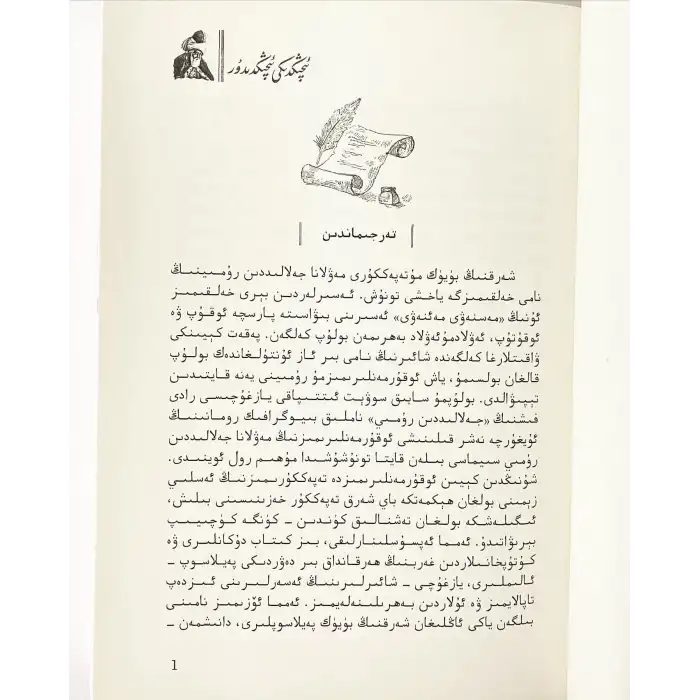 ئىچىڭدىكى ئىچىڭدىدۇر
تەرجىماندىن
شەرقنىڭ بۈيۈك مۇتەپەككۇرى مەۋلانا جەلالىددىن رۇمىينىڭ
نامى خەلقىمىزگە ياخشى تونۇش. ئەسىرلەردىن بېرى خەلقىمىز
ئۇنىڭ «مەسنەۋى مەئنەۋى» ئەسىرىنى بىۋاستە پارسچە ئوقۇپ ۋە
ئوقۇتۇپ، ئەۋلادمۇئەۋلاد بەھرىمەن بولۇپ كەلگەن. پەقەت كېيىنكى
ۋاقىتلارغا كەلگەندە شائىرنىڭ نامى بىر ئاز ئۇنتۇلغاندەك بولۇپ
قالغان بولسىمۇ، ياش ئوقۇرمەنلىرىمىزمۇ رۇمىينى يەنە قايتىدىن
تېپىۋالدى. بولۇپمۇ سابىق سوۋېت ئىتتىپاقى يازغۇچىسى رادى
فىشنىڭ «جەلالىددىن رۇمىي» ناملىق بىيوگرافىك رومانىنىڭ
ئۇيغۇرچە نەشر قىلىنىشى ئوقۇرمەنلىرىمىزنىڭ مەۋلانا جەلالىددىن
رۇمىي سىيماسى بىلەن قايتا تونۇشۇشىدا مۇھىم رول ئوينىدى.
شۇنىڭدىن كېيىن ئوقۇرمەنلىرىمىزدە تەپەككۇرىمىزنىڭ ئەسلىي
زېمىنى بولغان ھېكمەتكە باي شەرق تەپەككۇر خەزىنىسىنى بىلىش،
ئىگىلەشكە بولغان تەشنالىق كۈندىن – كۈنگە كۈچىيىپ
بېرىۋاتىدۇ. ئەمما ئەپسۇسلىنارلىقى، بىز كىتاب دۇكانلىرى ۋە
كۈتۈپخانىلاردىن غەربنىڭ ھەرقانداق بىر دەۋردىكى پەيلاسوپ –
ئالىملىرى، يازغۇچى – شائىرلىرىنىڭ ئەسەرلىرىنى ئىزدەپ
تاپالايمىز ۋە ئۇلاردىن بەھرىلىنەلەيمىز. ئەمما ئۆزىمىز نامىنى
بىلگەن ياكى ئاڭلىغان شەرقنىڭ بۈيۈك پەيلاسوپلىرى، دانىشمەن –
1